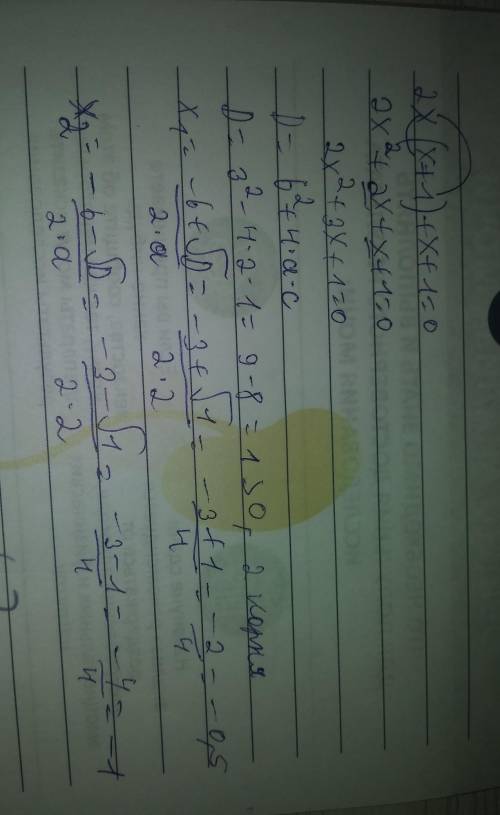 2x(x+1)+x+1=0
2x²+2x+x+1=0
2x²+3x+1=0
D=b²+4·a·c
D=3²-4·2·1=9-8=1>0, 2 корня
x₁=-b+√D/2·a=-3+√1/2·2=-3+1/4=-2/4=-0,5
x₂=-b-√D/2·a=-3-√1/2·2=-3-1/4=-4/4=-1